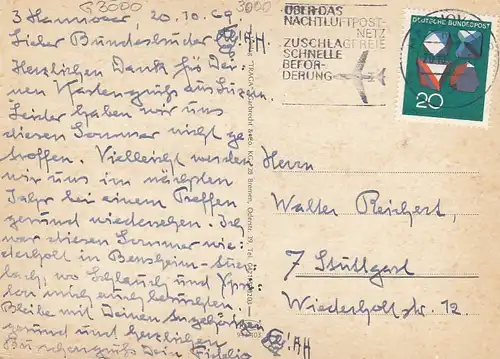 G3000 3000
3 Hannover, 20.10.69
Lieber Bundesbruder
Herzlichen Dank für Dei-
nen Kartengruß aus Luzern.
Leider haben wir uns
diesen Sommer nicht ge
troffen. Vielleicht werden
wir uns im nächsten
Jahr bei einem Treffen
gesund wiedersehen. Ich
war diesen Sommer wie-
derholt in Bensheim-Auer-
bach, wo Schlauch und
mich auch besuchten.
Bleibe mit Deinen Angehörigen
gesund und herzlichen
Burschengruß Dein Fidelio
ÜBER DAS
NACHTLUFTPOST-
NETZ
ZUSCHLAGFREIE
SCHNELLE
BEFÖR-
DERUNG
DEUTSCHE BUNDESPOST
20
Herrn
Walter Reichert,
7 Stuttgart
Wiederholdstr. 12.